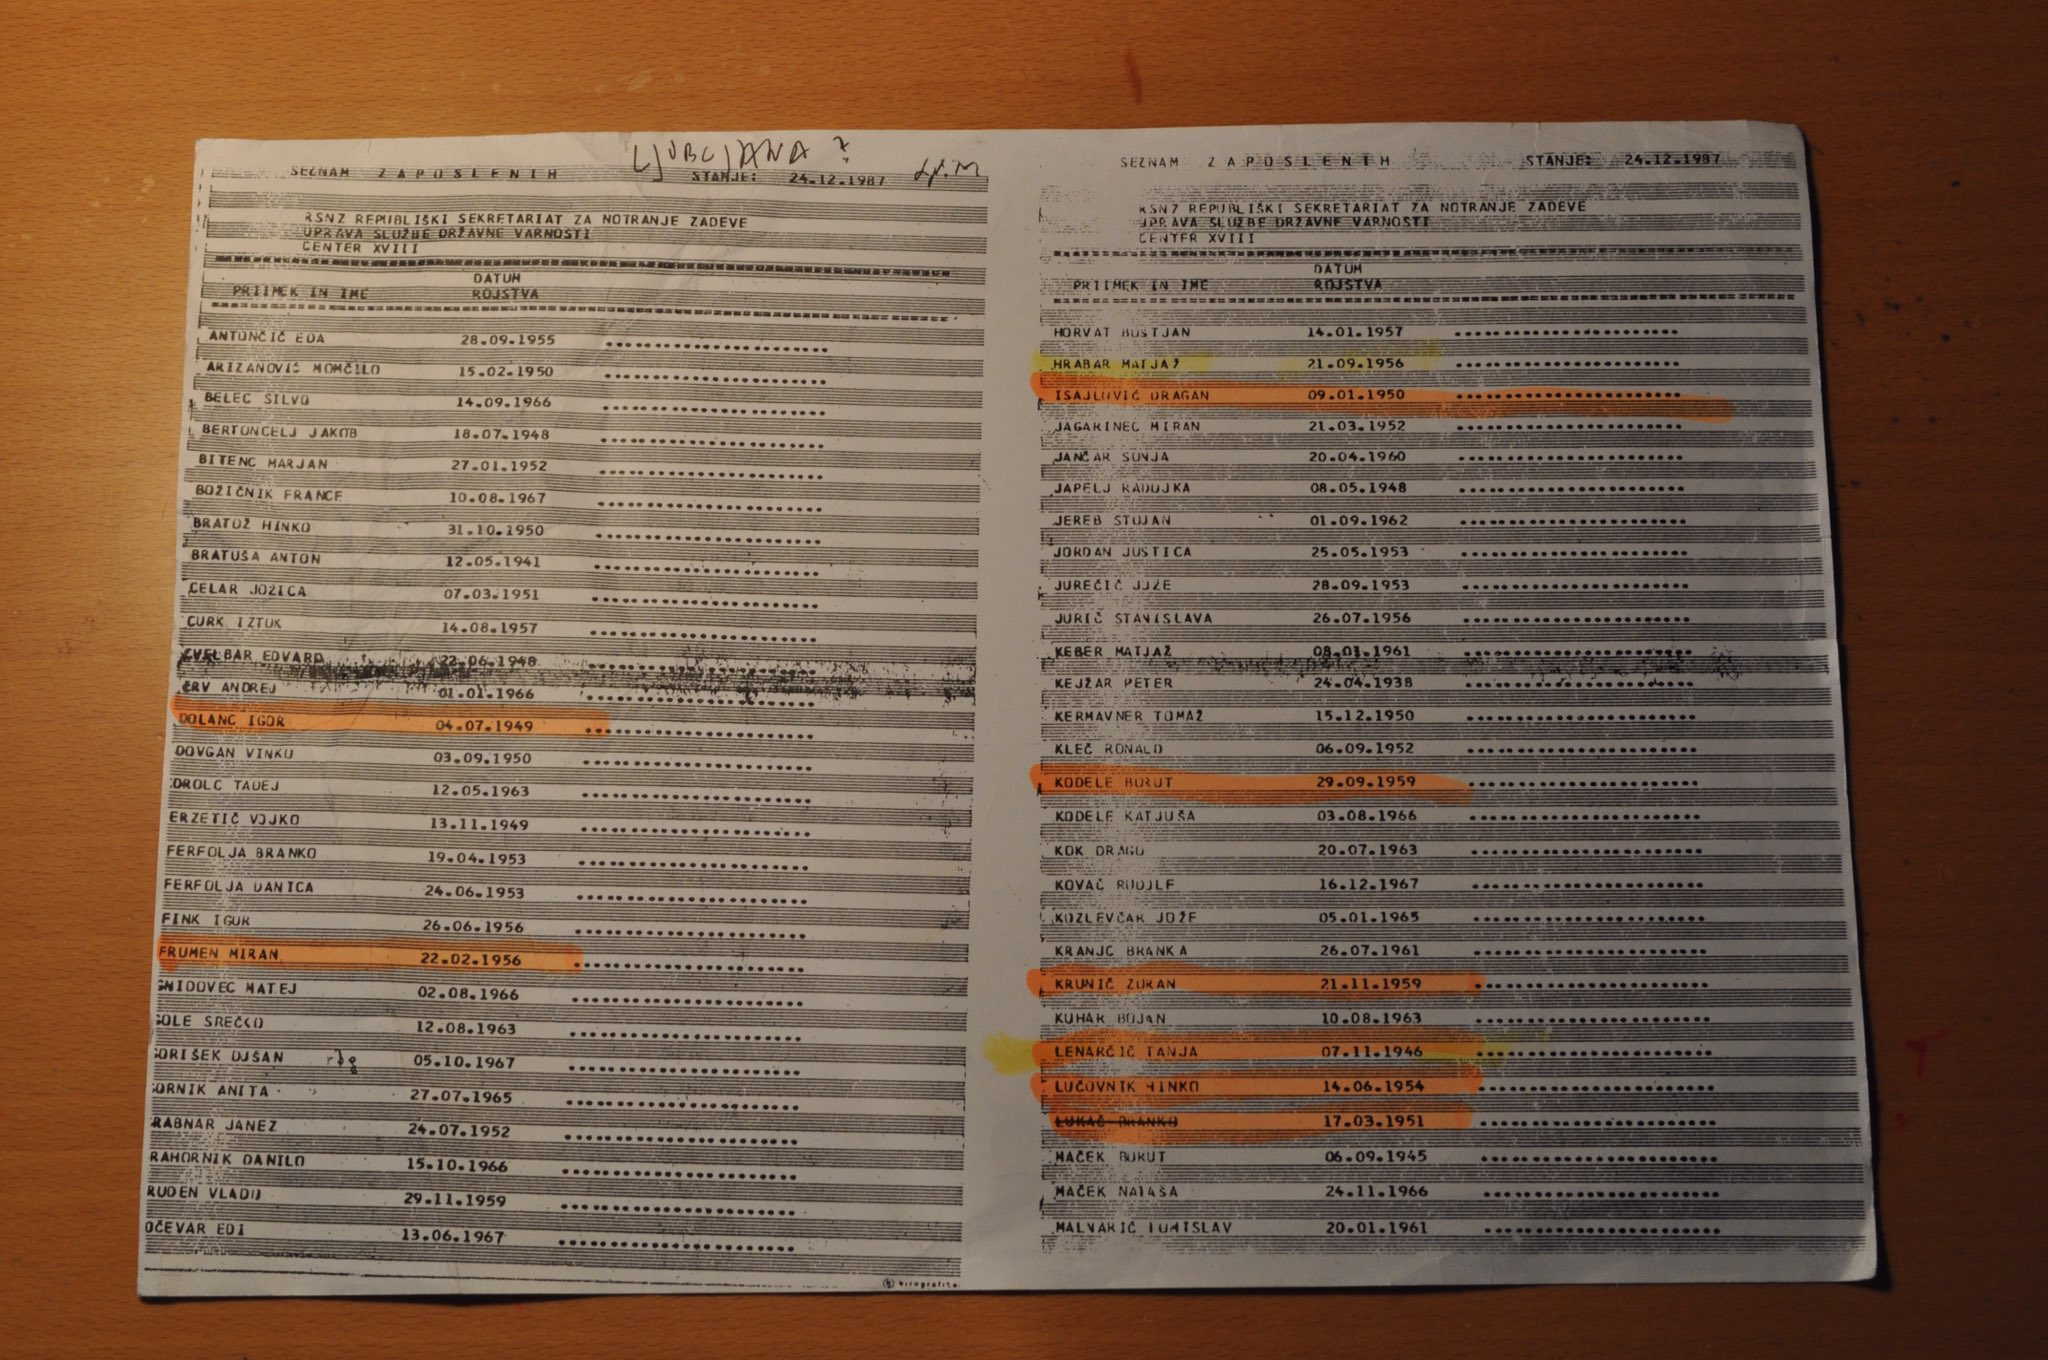 LJUBLJANA ?
SEZNAM ZAPOSLENIH STANJE: 24.12.1987
RSNZ REPUBLIŠKI SEKRETARIAT ZA NOTRANJE ZADEVE
UPRAVA SLUŽBE DRŽAVNE VARNOSTI
CENTER XVIII
DATUM
PRIIMEK IN IME ROJSTVA
ANTONČIČ EDA 28.09.1955
ARIZANOVIČ MOMČILO 15.02.1950
BELEC SILVO 14.09.1966
BERTONCELJ JAKOB 18.07.1948
BITENC MARJAN 27.01.1952
BOŽIČNIK FRANCE 10.08.1967
BRATOŽ HINKO 31.10.1950
BRATUŠA ANTON 12.05.1941
CELAR JOŽICA 07.03.1951
CURK IZTOK 14.08.1957
CVELBAR EDVARD 22.06.1948
ČRV ANDREJ 01.01.1966
DOLANC IGOR 04.07.1949
DOVGAN VINKO 03.09.1950
DROLC TADEJ 12.05.1963
ERZETIČ VOJKO 13.11.1949
FERFOLJA BRANKO 19.04.1953
FERFOLJA DANICA 24.06.1953
FINK IGOR 26.06.1956
FRUMEN MIRAN 22.02.1956
GNIDOVEC MATEJ 02.08.1966
GOLE SREČKO 12.08.1963
GORIŠEK DUŠAN 05.10.1967
ORNIK ANITA 27.07.1965
RABNAR JANEZ 24.07.1952
RAHORNIK DANILO 15.10.1966
RUDEN VLADO 29.11.1959
OČEVAR EDI 13.06.1967
birografika
SEZNAM ZAPOSLENIH STANJE: 24.12.1987
RSNZ REPUBLIŠKI SEKRETARIAT ZA NOTRANJE ZADEVE
UPRAVA SLUŽBE DRŽAVNE VARNOSTI
CENTER XVIII
DATUM
PRIIMEK IN IME ROJSTVA
HORVAT BOŠTJAN 14.01.1957
HRABAR MATJAŽ 21.09.1956
ISAJLOVIČ DRAGAN 09.01.1950
JAGARINEC MIRAN 21.03.1952
JANČAR SONJA 20.04.1960
JAPELJ RADOJKA 08.05.1948
JEREB STOJAN 01.09.1962
JORDAN JUSTICA 25.05.1953
JUREČIČ JOŽE 28.09.1953
JURIČ STANISLAVA 26.07.1956
KEBER MATJAŽ 08.01.1961
KEJŽAR PETER 24.04.1938
KERMAVNER TOMAŽ 15.12.1950
KLEČ RONALD 06.09.1952
KODELE BORUT 29.09.1959
KODELE KATJUŠA 03.08.1966
KOK DRAGO 20.07.1963
KOVAČ RUDOLF 16.12.1967
KOZLEVČAR JOŽE 05.01.1965
KRANJC BRANKA 26.07.1961
KRUNIČ ZORAN 21.11.1959
KUHAR BOJAN 10.08.1963
LENARČIČ TANJA 07.11.1946
LUČOVNIK HINKO 14.06.1954
LUKAČ BRANKO 17.03.1951
MAČEK BORUT 06.09.1945
MAČEK NATAŠA 24.11.1966
MALNARIČ TOMISLAV 20.01.1961